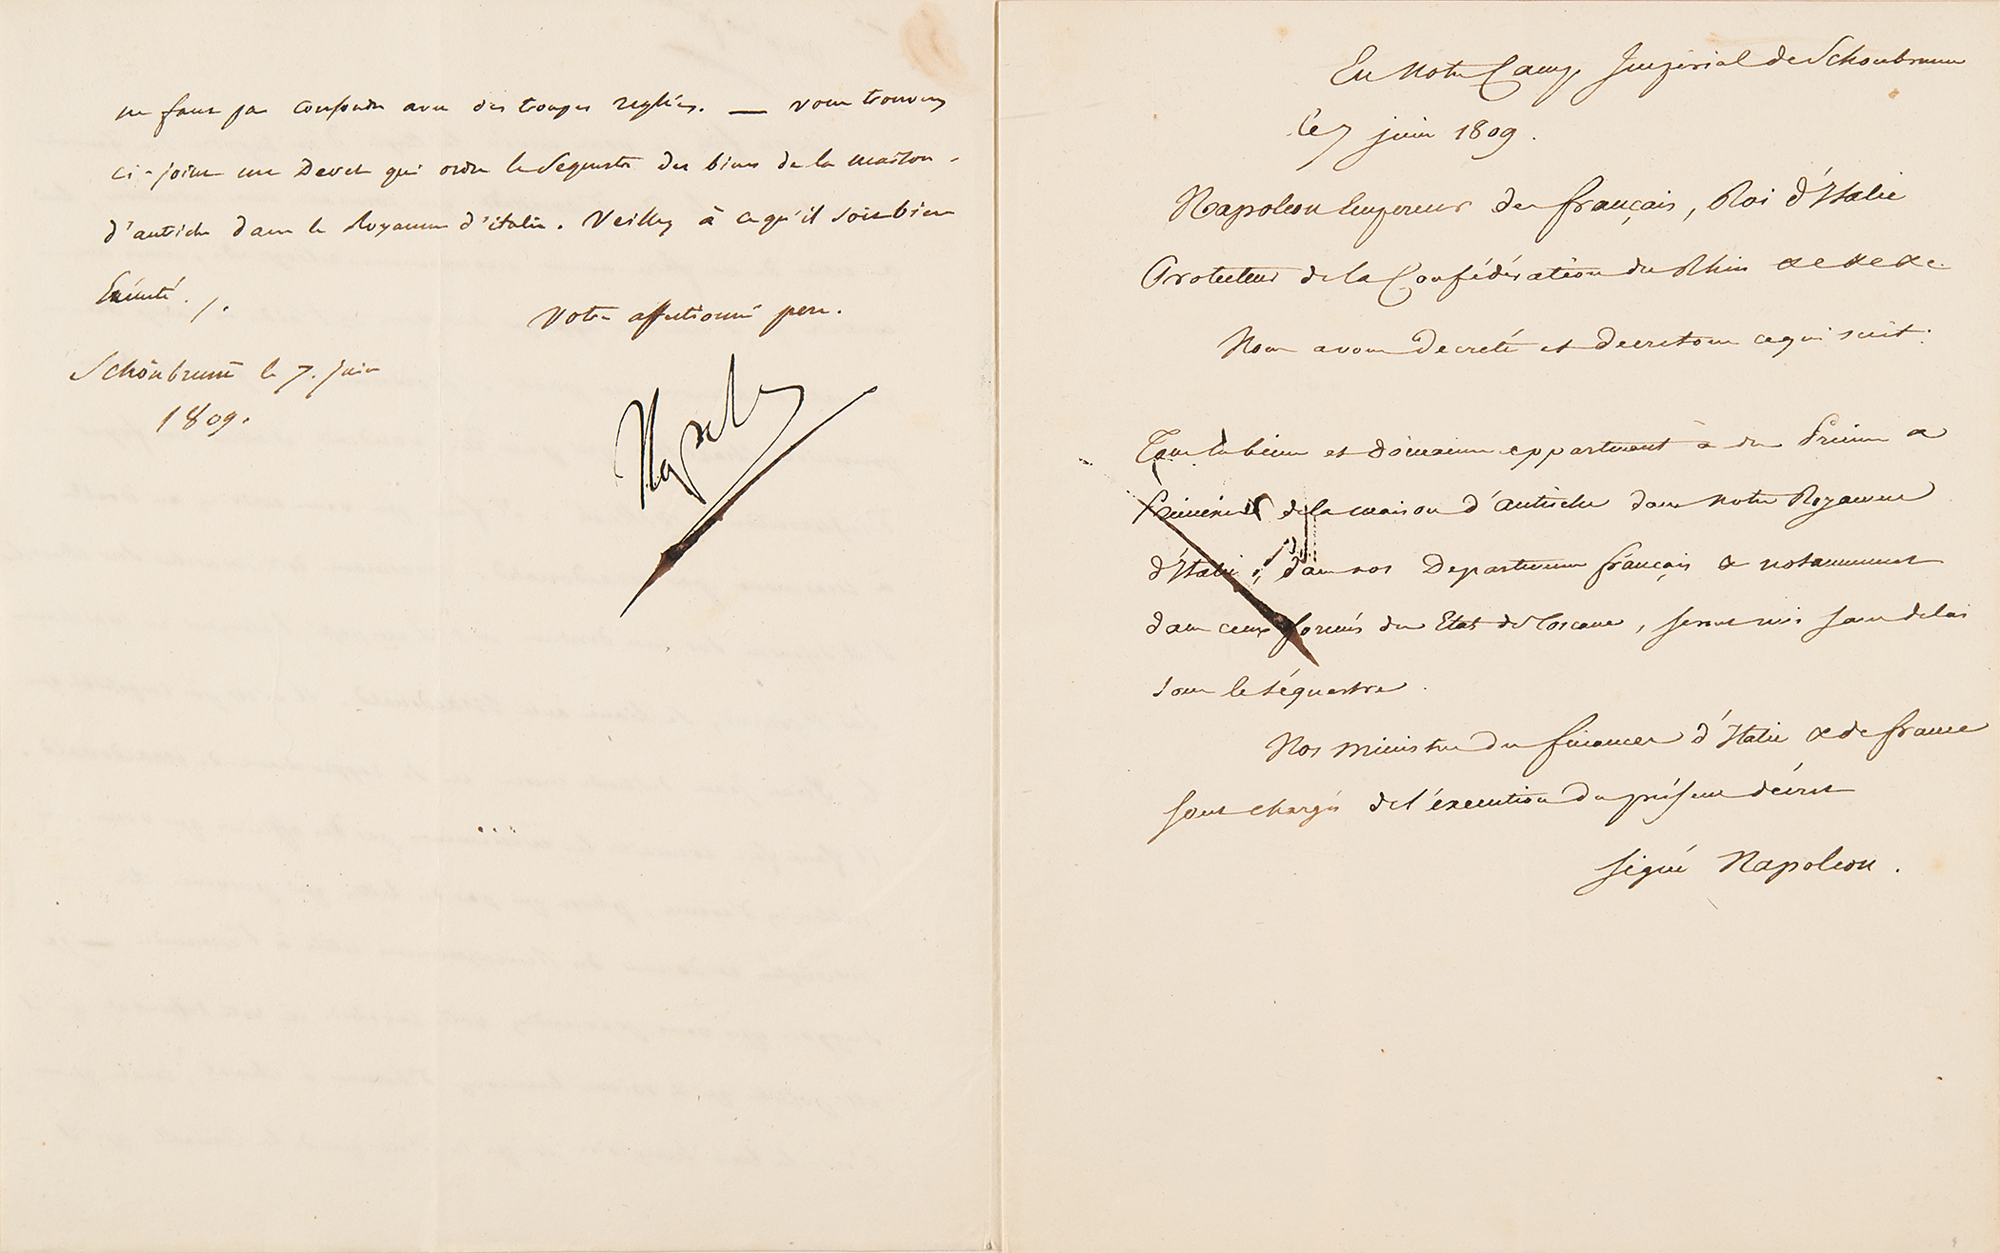 ne faut pas confondre avec des troupes reglées. — vous trouverez
ci-joint un Decret qui ordre le Sequestre des biens de la maison
d'autriche dans le Royaume d'italie. Veillez à ce qu'il soit bien
Exécuté ./.
Votre affectionné pere.
Schönbrunn le 7. juin
1809.
Napole
En Notre Camp Impérial de Schonbrunn
le 7 juin 1809.
Napoleon Empereur des français, Roi d'Italie
Protecteur de la Confédération du Rhin &c &c &c.
Nous avons Decreté et decretons ce qui suit:
Tous les biens et domaines appartenant à des Princes &
Princesses de la maison d'Autriche dans notre Royaume
d'Italie, dans nos Departemens français & notamment
dans ceux formés des Etats de Toscane, seront mis sans delai
sous le séquestre.
Nos ministres des finances d'Italie & de france
sont chargés de l'éxecution du présent décret
signé Napoleon.